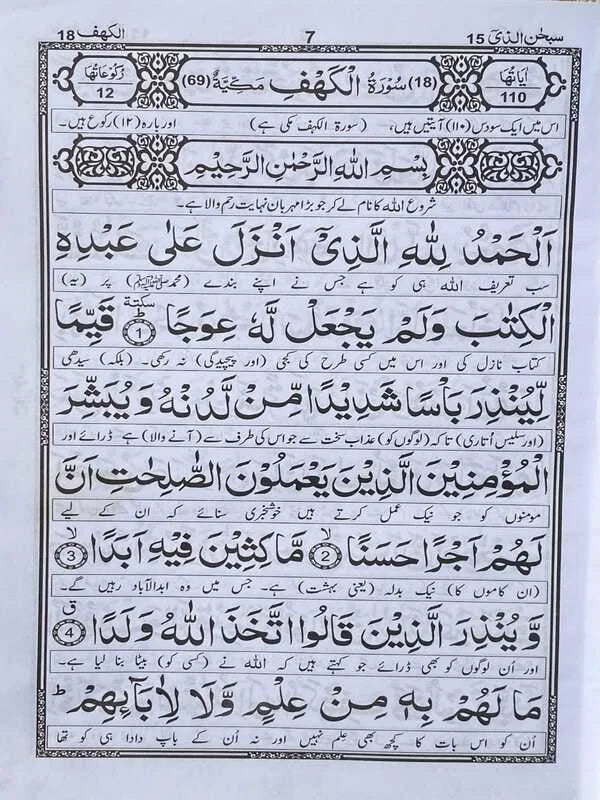 سبحٰن الذیٓ 15 7 الکهف 18
اٰیَاتُهَا 110 (18) سُوْرَةُ الْكَهْفِ مَكِّيَّةٌ (69) رُكُوْعَاتُهَا 12
اس میں ایک سو دس (۱۱۰) آیتیں ہیں، (سورۃ الکهف مکی ہے) اور بارہ (۱۲) رکوع ہیں۔
بِسْمِ اللّٰهِ الرَّحْمٰنِ الرَّحِيْمِ
شروع اللہ کا نام لے کر جو بڑا مہربان نہایت رحم والا ہے۔
اَلْحَمْدُ لِلّٰهِ الَّذِيْٓ اَنْزَلَ عَلٰى عَبْدِهِ
سب تعریف اللہ ہی کو ہے جس نے اپنے بندے (محمدﷺ) پر (یہ)
الْكِتٰبَ وَلَمْ يَجْعَلْ لَّهٗ عِوَجًا ؕ سكتة 1 قَيِّمًا
کتاب نازل کی اور اس میں کسی طرح کی کجی (اور پیچیدگی) نہ رکھی۔ (بلکہ) سیدھی
لِّيُنْذِرَ بَاْسًا شَدِيْدًا مِّنْ لَّدُنْهُ وَيُبَشِّرَ
(اور سلیس اُتاری) تاکہ (لوگوں کو) عذاب سخت سے جو اس کی طرف سے (آنے والا) ہے ڈرائے اور
الْمُؤْمِنِيْنَ الَّذِيْنَ يَعْمَلُوْنَ الصّٰلِحٰتِ اَنَّ
مومنوں کو جو نیک عمل کرتے ہیں خوشخبری سنائے کہ ان کے لیے
لَهُمْ اَجْرًا حَسَنًا ۙ 2 مَّاكِثِيْنَ فِيْهِ اَبَدًا ۙ 3
(ان کاموں کا) نیک بدلہ (یعنی بہشت) ہے۔ جس میں وہ ابدالآباد رہیں گے۔
وَّيُنْذِرَ الَّذِيْنَ قَالُوا اتَّخَذَ اللّٰهُ وَلَدًا ق 4
اور اُن لوگوں کو بھی ڈرائے جو کہتے ہیں کہ اللہ نے (کسی کو) بیٹا بنا لیا ہے۔
مَا لَهُمْ بِهٖ مِنْ عِلْمٍ وَّلَا لِاٰبَآئِهِمْ ؕ
اُن کو اس بات کا کچھ بھی علم نہیں اور نہ اُن کے باپ دادا ہی کو تھا